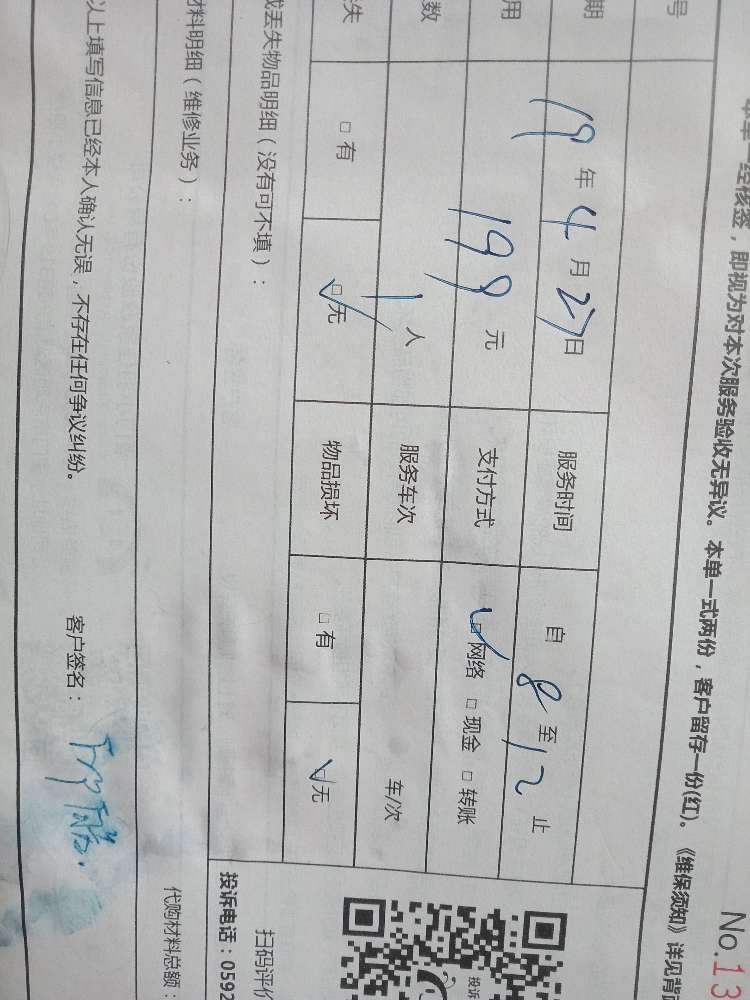 No.13
本单一经核签，即视为对本次服务验收无异议。本单一式两份，客户留存一份(红)。《维保须知》详见背
号
期 19年4月27日 服务时间 自8至12止
用 199元 支付方式 ☑网络 □现金 □转账
数 1人 服务车次 车/次
失 □有 ☑无 物品损坏 □有 ☑无
或丢失物品明细（没有可不填）：
扫码评价
投诉
投诉电话：0592
材料明细（维修业务）：
代购材料总额：
以上填写信息已经本人确认无误，不存在任何争议纠纷。 客户签名：